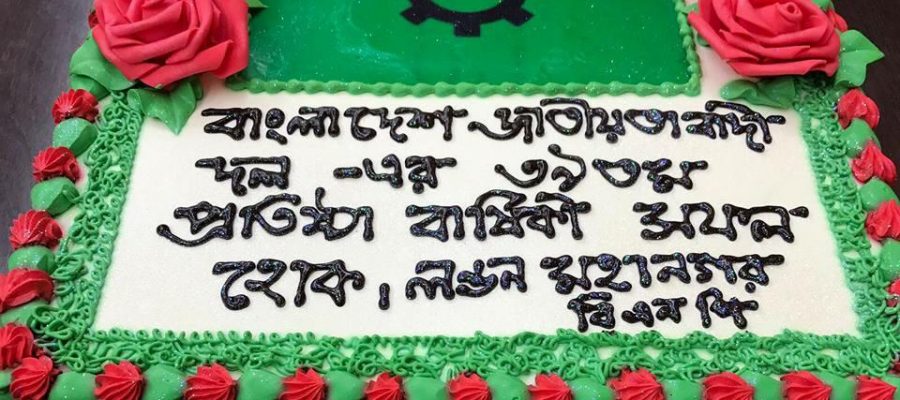 বাংলাদেশ জাতীয়তাবাদী
দল -এর ৩৯তম
প্রতিষ্ঠা বার্ষিকী সফল
হোক, লন্ডন মহানগর
বি এন পি